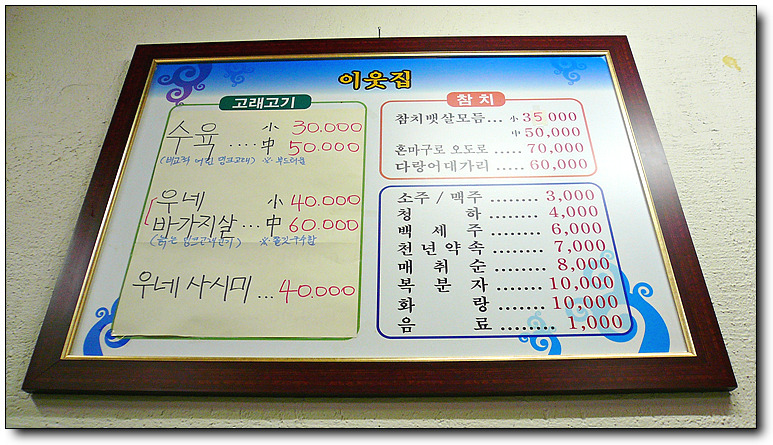 이웃집
고래고기
수육 小 30.000
.... 中 50.000
(비교적 어린 밍크고래) ※ 부드러움
우네 小 40.000
바가지살 ... 中 60.000
우네 사시미 ... 40.000
참치
참치뱃살모듬... 小 35 000
中 50,000
혼마구로 오도로 ..... 70,000
다랑어대가리 ..... 60,000
소주 / 맥주 ....... 3,000
청 하 ........ 4,000
백 세 주 ........ 6,000
천년약속 ........ 7,000
매 취 순 ........ 8,000
복 분 자 ....... 10,000
화 랑 ....... 10,000
음 료 ........ 1,000